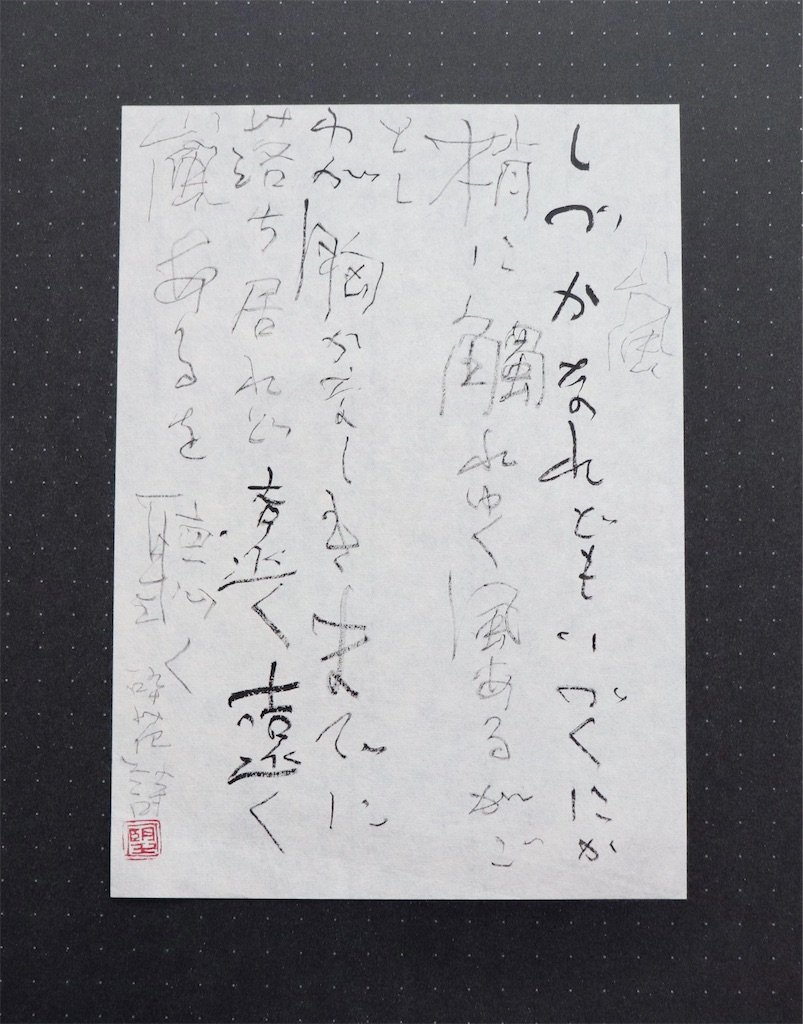 嵐
しづかなれどもいづくにか
梢に觸れゆく風あるがご
とし
わが胸かなしきまでに
落ち居れば遠く遠く
嵐あるを聽く